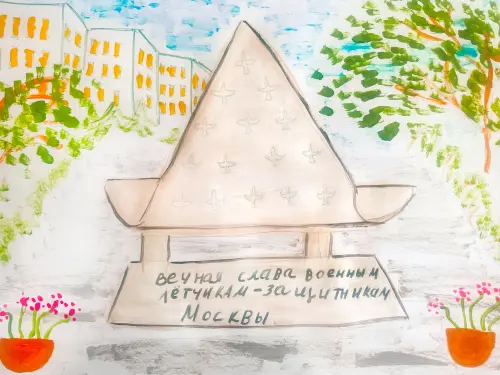 вечная слава военным
лётчикам-защитникам
Москвы